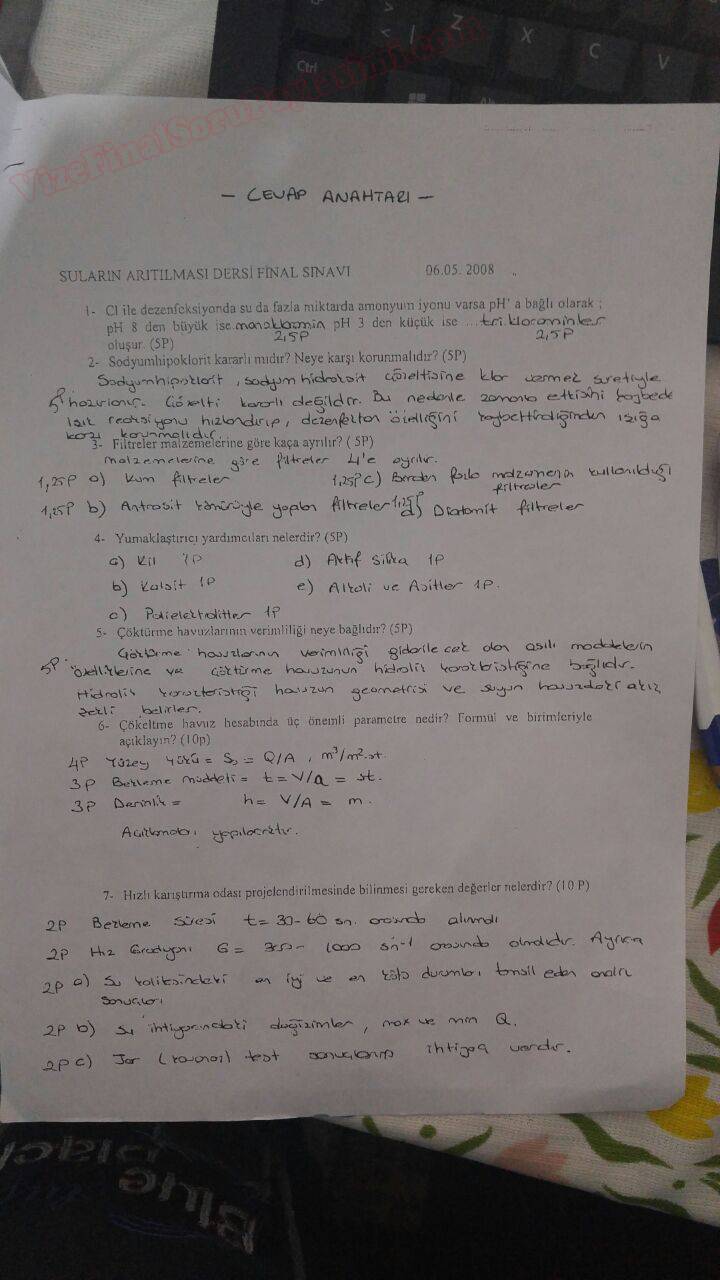 VizeFinalSoruPaylasimi.com
- CEVAP ANAHTARI -
SULARIN ARITILMASI DERSİ FİNAL SINAVI 06.05. 2008
1- Cl ile dezenfeksiyonda su da fazla miktarda amonyum iyonu varsa pH' a bağlı olarak ;
pH 8 den büyük ise monokloramin pH 3 den küçük ise ....tri kloraminler
oluşur. (5P) 2,5P 2,5P
2- Sodyumhipoklorit kararlı mıdır? Neye karşı korunmalıdır? (5P)
Sodyumhipoklorit, sodyum hidroksit çözeltisine klor vermek suretiyle
5P hazırlanır. Çözelti kararlı değildir. Bu nedenle zamanla etkisini kaybeder
Işık reaksiyonu hızlandırıp, dezenfektan özelliğini kaybettirdiğinden ışığa
karşı korunmalıdır.
3- Filtreler malzemelerine göre kaça ayrılır? ( 5P)
Malzemelerine göre filtreler 4'e ayrılır.
1,25P a) Kum filtreler 1,25P c) Birden fazla malzemenin kullanıldığı
filtreler
1,25P b) Antrasit kömürüyle yapılan filtreler 1,25P d) Diatomit filtreler
4- Yumaklaştırıcı yardımcıları nelerdir? (5P)
a) Kil 1P d) Aktif Silika 1P
b) Kalsit 1P e) Alkali ve Asitler 1P.
c) Polielektrolitler 1P
5- Çöktürme havuzlarının verimliliği neye bağlıdır? (5P)
Çöktürme havuzlarının verimliliği giderilecek olan asılı maddelerin
5P özelliklerine ve çöktürme havuzunun hidrolik karakteristiğine bağlıdır.
Hidrolik karakteristiği havuzun geometrisi ve suyun havuzdaki akış
şekli belirler.
6- Çökeltme havuz hesabında üç önemli parametre nedir? Formül ve birimleriyle
açıklayın? (10p)
4P Yüzey Yükü = S₀ = Q/A , m³/m².st.
3P Bekleme müddeti = t = V/Q = st.
3P Derinlik = h = V/A = m.
Açıklamaları yapılacaktır.
7- Hızlı karıştırma odası projelendirilmesinde bilinmesi gereken değerler nelerdir? (10 P)
2P Bekleme Süresi t= 30-60 sn. arasında alınmalı
2P Hız Gradyanı G = 1000 sn-1 arasında olmalıdır. Ayrıca
2P a) Su kalitesindeki en iyi ve en kötü durumları temsil eden analiz
sonuçları
2P b) Su ihtiyacındaki değişimler, max ve min Q.
2P c) Jar (kavanoz) test sonuçlarına ihtiyaç vardır.